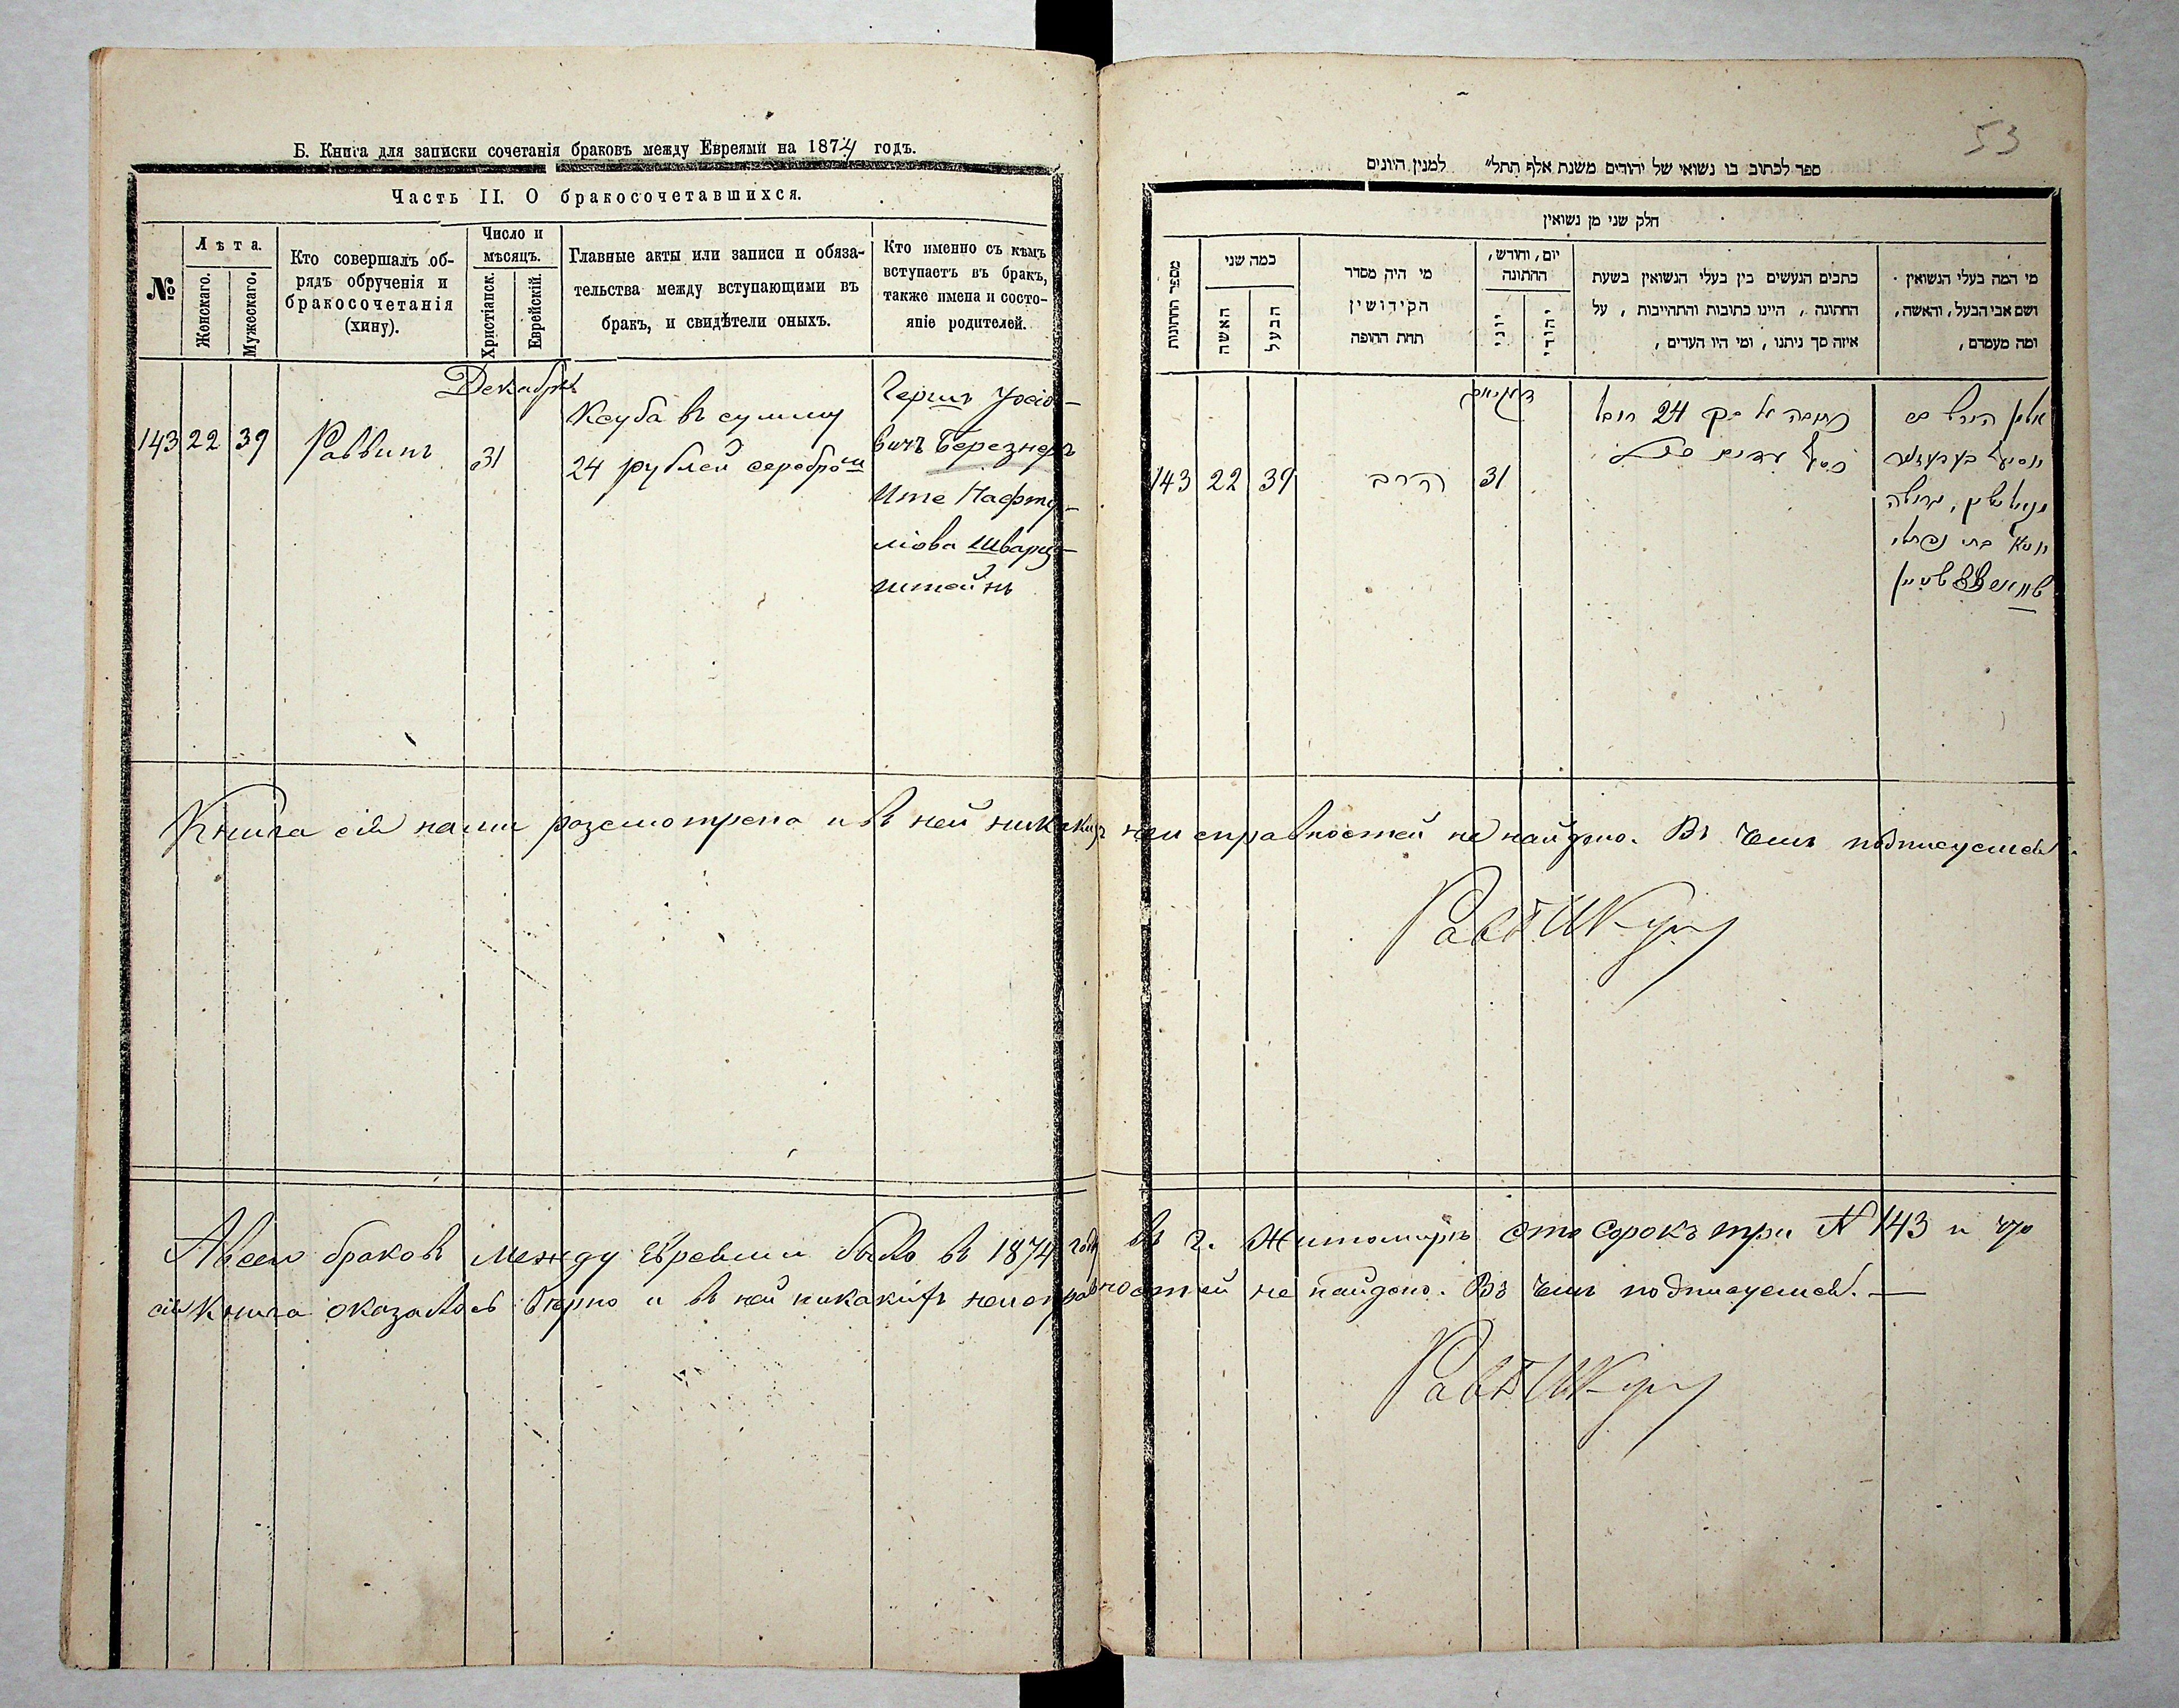 Б. Книга для записки сочетанія браковъ между Евреями на 1874 годъ.
Часть II. О бракосочетавшихся.
№
Лѣта.
Женскаго.
Мужескаго.
Кто совершалъ об-
рядъ обрученія и
бракосочетанія
(хину).
Число и
мѣсяцъ.
Христіанск.
Еврейскій.
Главные акты или записи и обяза-
тельства между вступающими въ
бракъ, и свидѣтели оныхъ.
Кто именно съ кѣмъ
вступаетъ въ бракъ,
также имена и состо-
яніе родителей.
Декабрь
143 22 39 Раввинъ 31
Ксуба въ сумму
24 рублей серебромъ
Гершъ Уосіо-
вичъ Березнеръ
Ите Нафту-
ліова Шварц-
штейнъ
53
ספר לכתוב בו נשואי של יהודים משנת אלף תתל״ למנין היונים
חלק שני מן נשואין
מספר החתונות
כמה שני
האשה
הבעל
מי היה מסדר
הקידושין
תחת החופה
יום, וחודש,
החתונה
יוני
יהודי
כתבים הנעשים בין בעלי הנשואין בשעת
החתונה, היינו כתובות והתחייבות, על
איזה סך ניתנו, ומי היו העדים,
מי המה בעלי הנשואין
ושם אבי הבעל, והאשה,
ומה מעמדם,
143 22 39 הרב 31
כתובה על סך 24 רובל
כסף
שווארצשטיין
Книга сія нами разсмотрена и въ ней никакихъ неисправностей не найдено. Въ чемъ подписуемся.
А всего браковъ между Евреями было въ 1874 году въ г. Житомирѣ сто сорокъ три № 143 и что
сія книга оказалось вѣрно и въ ней никакихъ неисправностей не найдено. Въ чемъ подписуемся. —